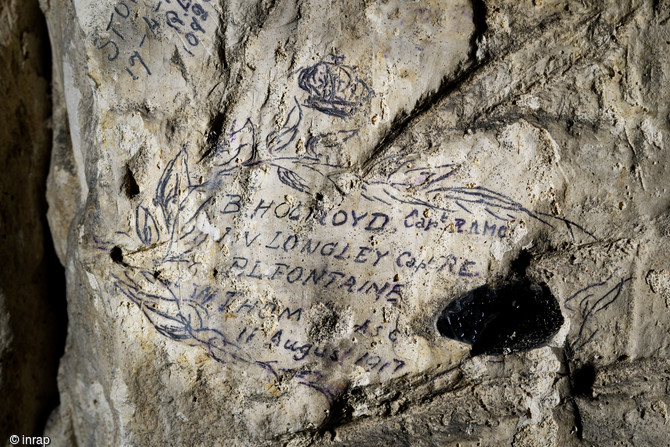 STO
17
1098
B. HOLROYD Capt RAMC
LONGLEY Capt RE
P.L. FONTAINE
THOM ASC
11 August 1917
© inrap